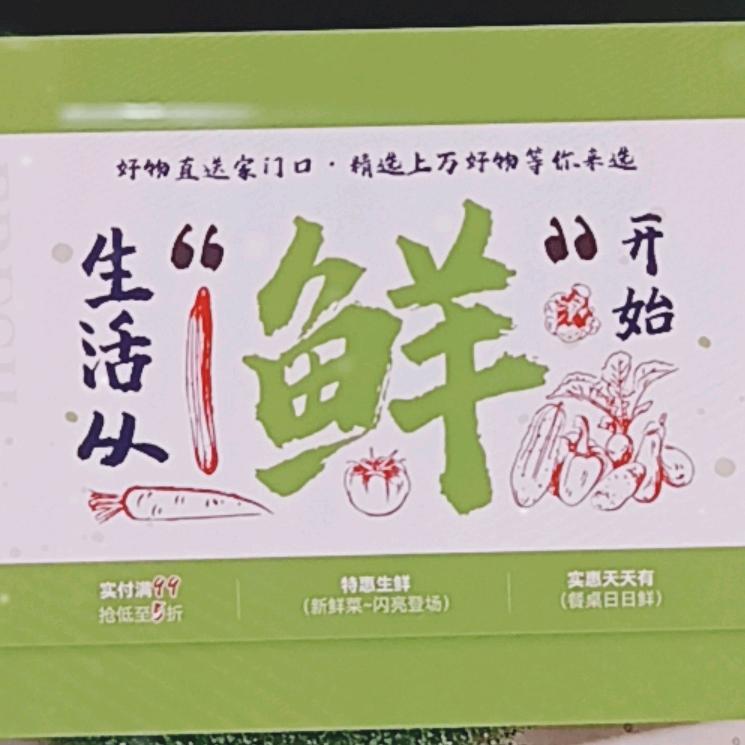 好物直送家门口·精选上万好物等你来选
生活从
“鲜”
开始
实付满99
抢低至5折
特惠生鲜
（新鲜菜~闪亮登场）
实惠天天有
（餐桌日日鲜）